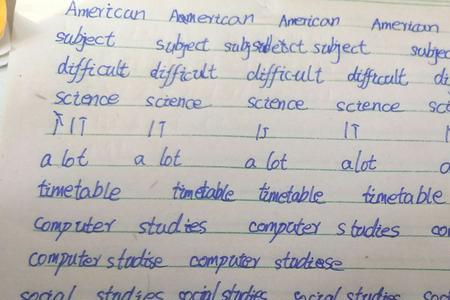 American American American American
subject subject subject subject
difficult difficult difficult difficult
science science science science
IT IT IT
a lot a lot a lot a lot
timetable timetable timetable timetable
computer studies computer studies
computer studise computer studiese
social studies social studies social studies